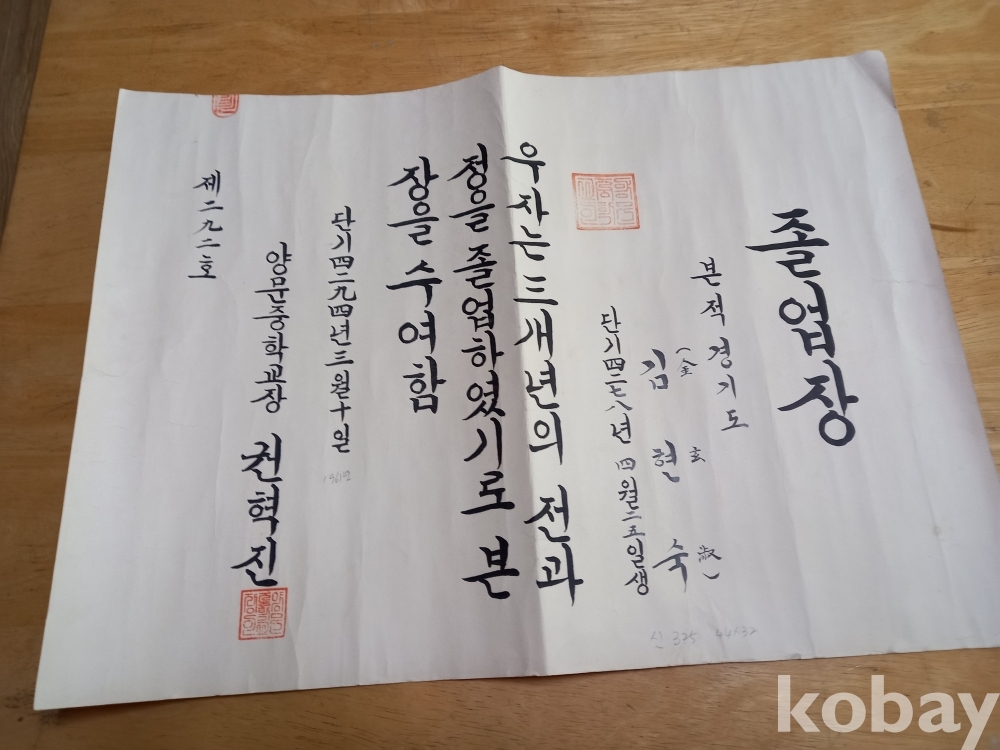 졸업장
본적 경기도
김현숙
(金玄淑)
단기四二七八년 四월二五일생
우자는 三개년의 전과
정을 졸업하였기로 본
장을 수여함
단기四二九四년三월十일
1961년
양문중학교장 권혁진
제二九二호
kobay